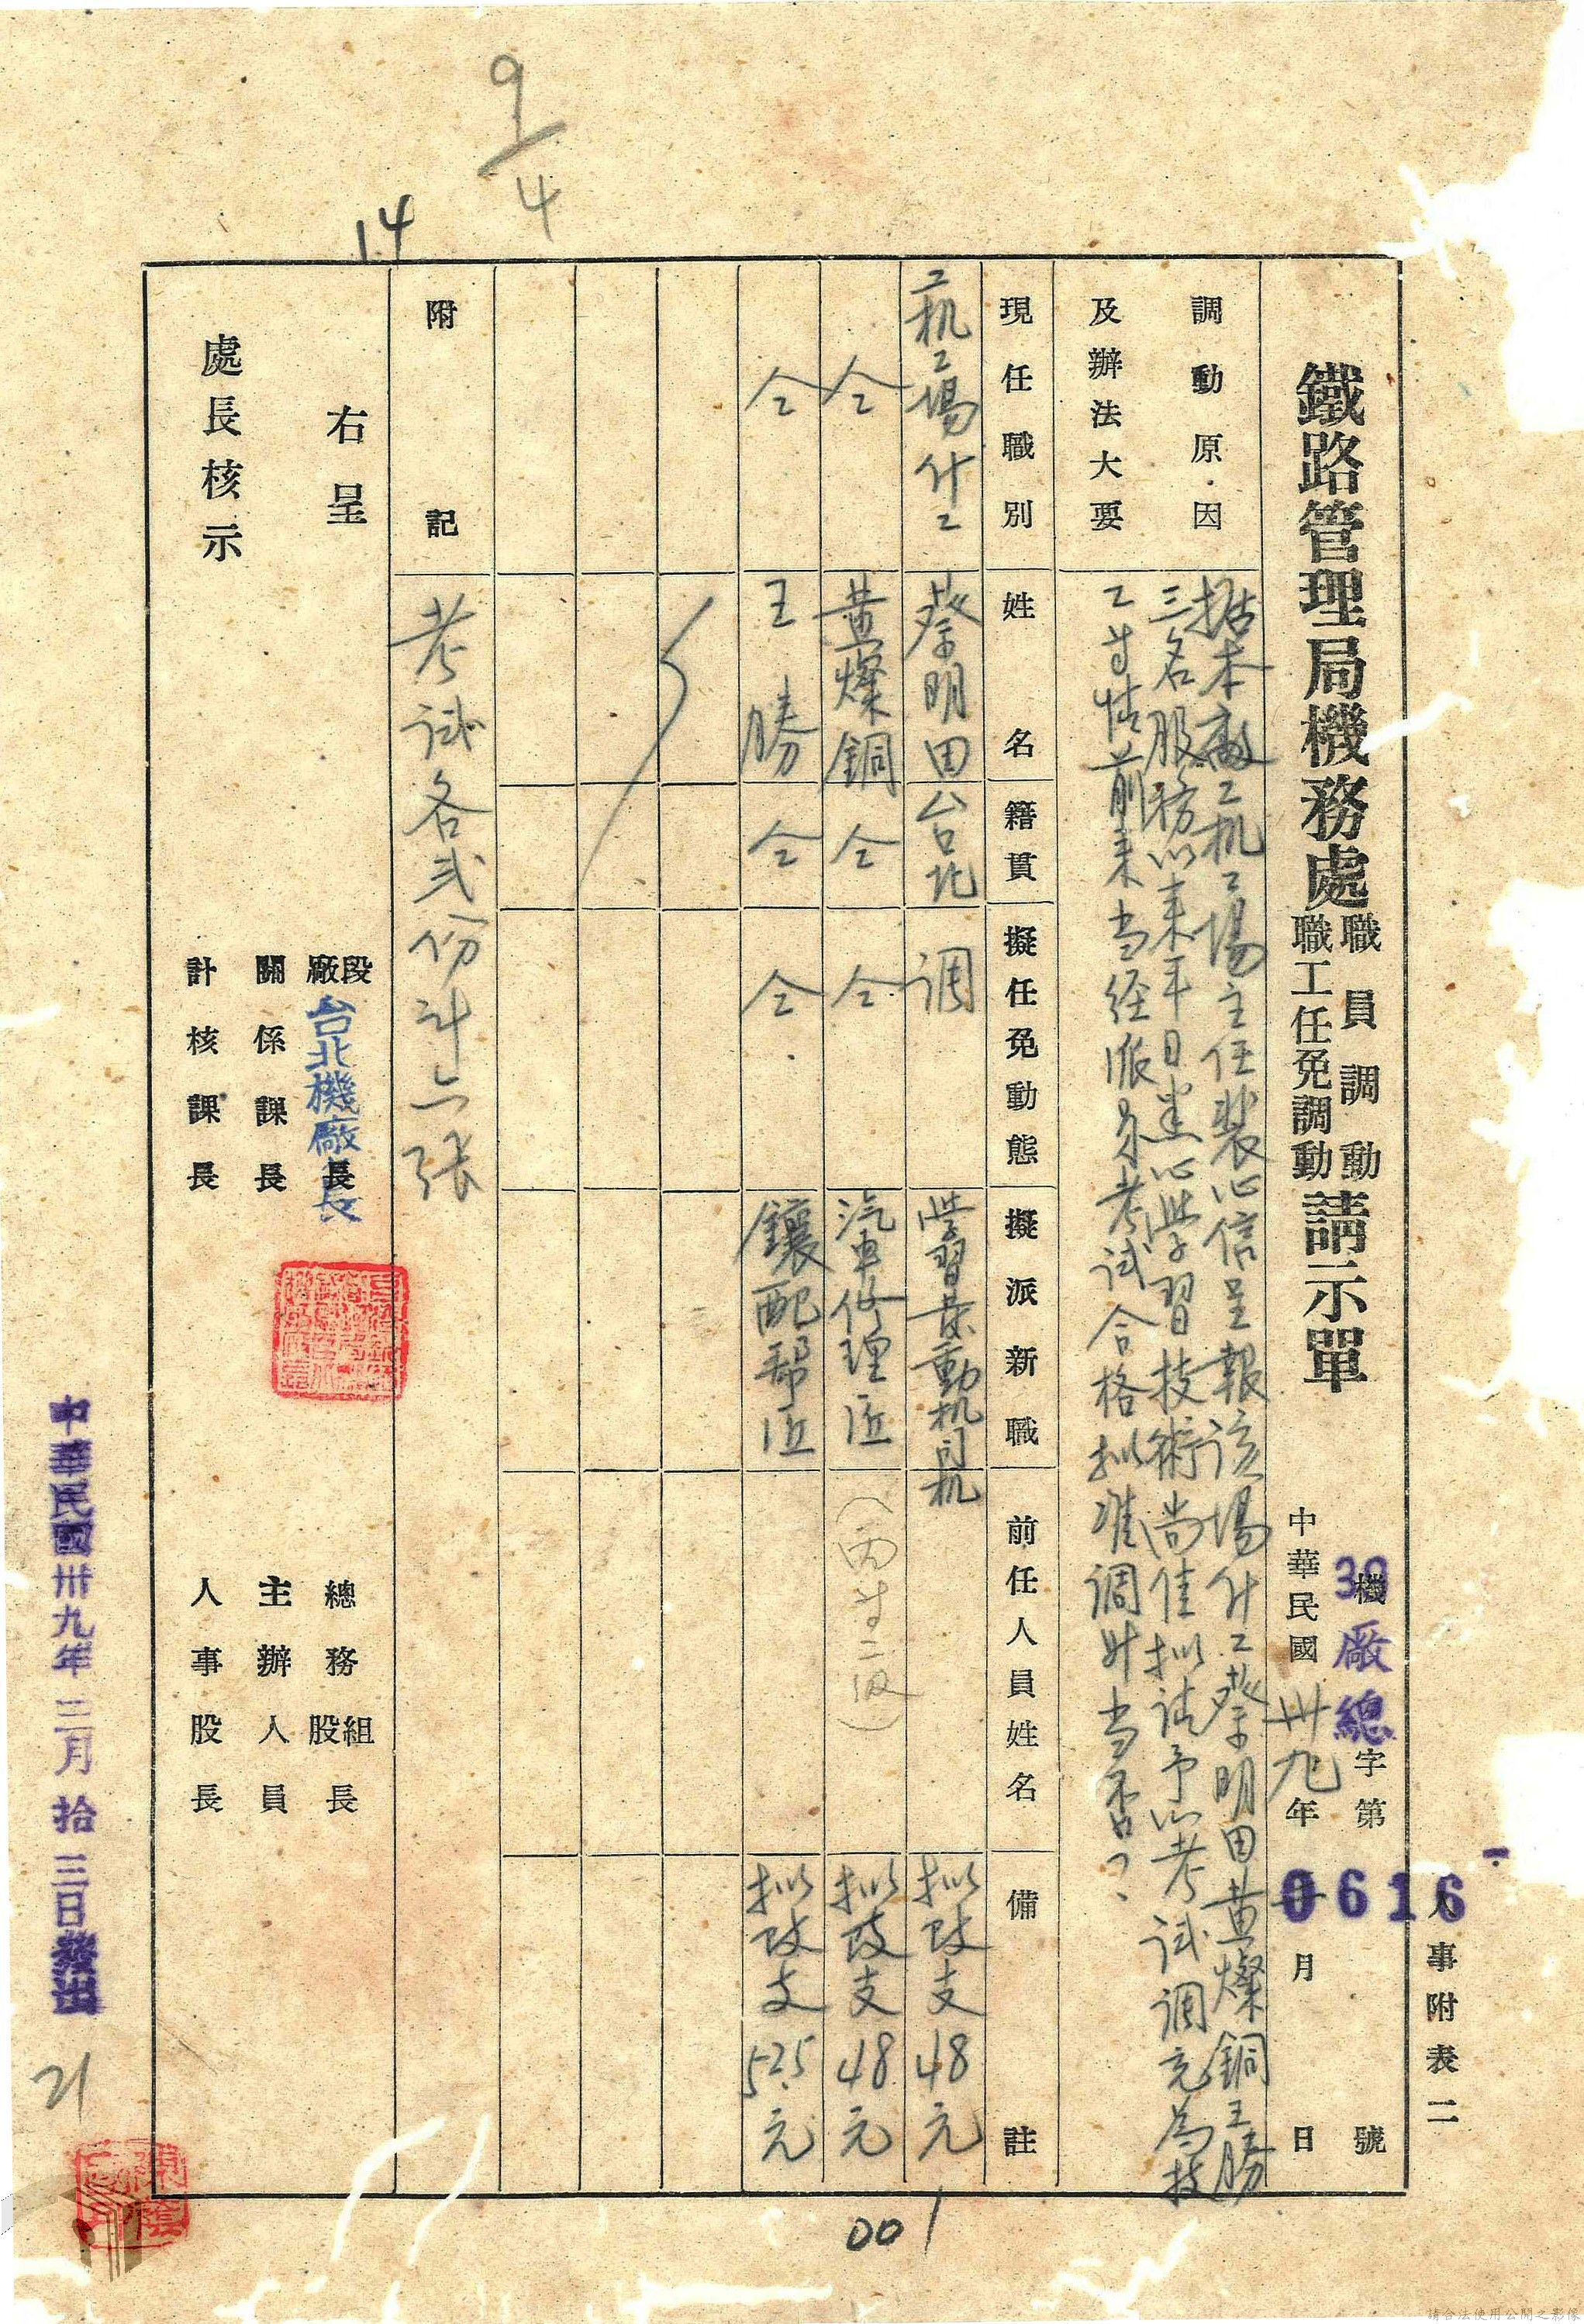 人事附表二
鐵路管理局機務處職員調動職工任免調動請示單
機廠總字第 0616 號
中華民國卅九年 月 日
調動原因及辦法大要
据本廠工机工場主任裴心信呈報該場什工蔡明田黃燦銅王勝
三名服務以来平日悉心學習技術尚佳拟請予以考試調充為技
工等情前来当经派員考試合格拟准調升当否?
現任職別 姓名 籍貫 擬任免動態 擬派新職 前任人員姓名 備註
工机工場什工 蔡明田 台北 调 學習發動机司机 拟改支48元
仝 黃燦銅 仝 仝 汽車修理匠 (丙等二級) 拟改支48元
仝 王勝 仝 仝 鑲配帮匠 拟改支52.5元
附記 考試各弍份計六張
右呈
處長核示
段廠長 台北機廠長
關係課長
計核課長
總務組股長
主辦人員
人事股長
中華民國卅九年三月拾三日發出
9/4
14
21
001
請合法使用公開之影像